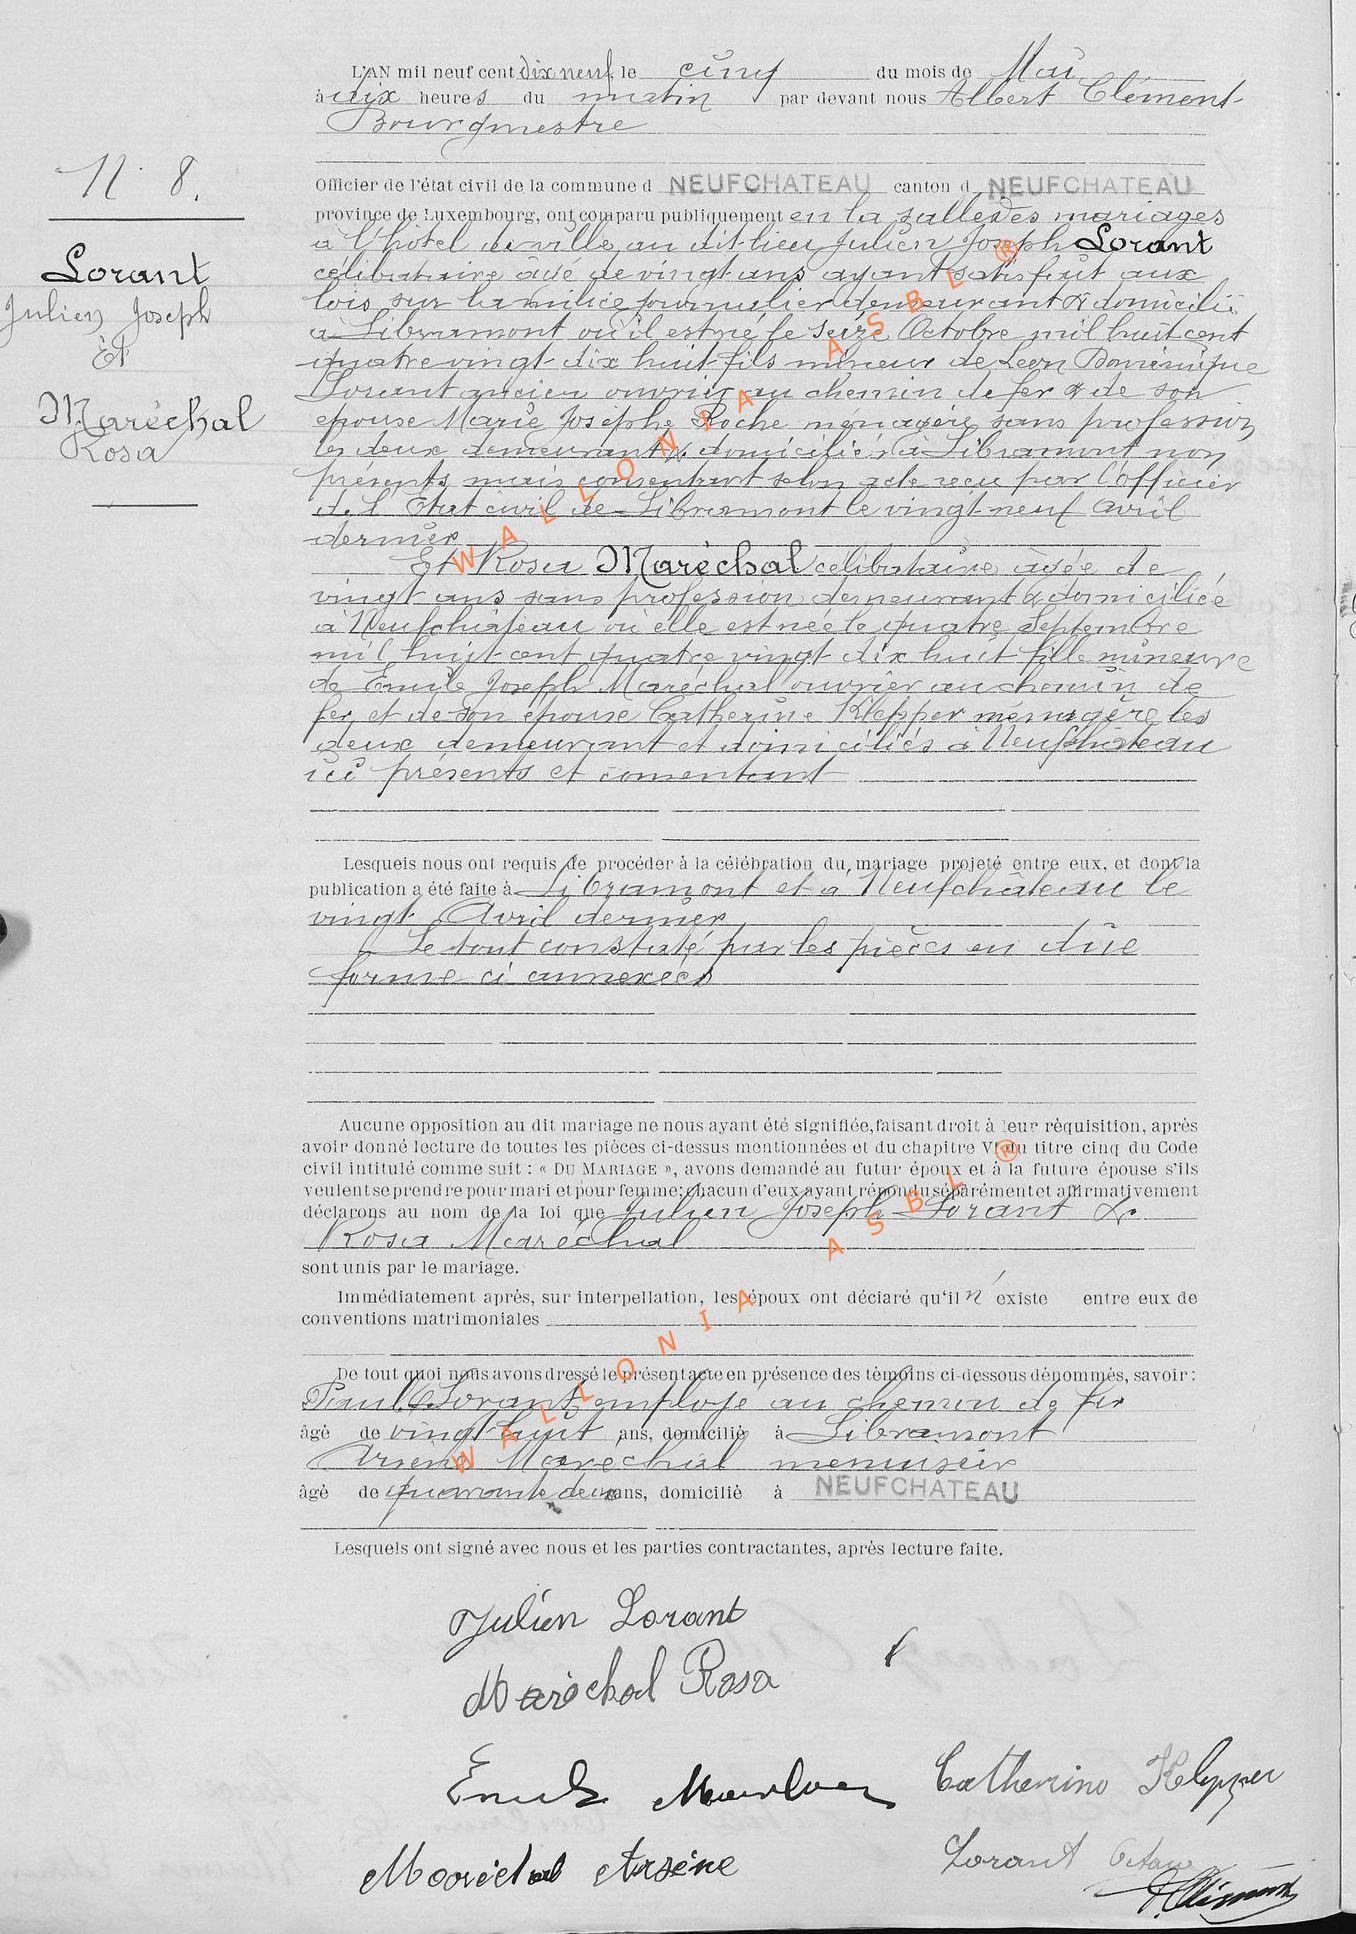 L'AN mil neuf cent dix neuf, le cinq du mois de Mai
à dix heures du matin par devant nous Albert Clément
Bourgmestre
N. 8.
Officier de l'état civil de la commune d NEUFCHATEAU canton d NEUFCHATEAU
province de Luxembourg, ont comparu publiquement en la salle des mariages
à l'hôtel de ville au dit lieu Julien Joseph Lorant
célibataire âgé de vingt ans ayant satisfait aux
lois sur la milice journalier demeurant & domicilié
à Libramont où il est né le seize Octobre mil huit cent
quatre vingt dix huit fils mineur de Léon Dominique
Lorant ancien ouvrier au chemin de fer & de son
épouse Marie Josèphe Roche ménagère sans profession
les deux demeurant & domiciliés à Libramont non
présents mais consentant selon acte reçu par l'officier
de l'Etat civil de Libramont le vingt neuf avril
dernier
Lorant
Julien Joseph
Et
Maréchal
Rosa
Et Rosa Maréchal célibataire âgée de
vingt ans sans profession demeurant & domiciliée
à Neufchâteau où elle est née le quatre Septembre
mil huit cent quatre vingt dix huit fille mineure
de Emile Joseph Maréchal ouvrier au chemin de
fer et de son épouse Catherine Klepper ménagère les
deux demeurant et domiciliés à Neufchâteau
ici présents et consentant
Lesquels nous ont requis de procéder à la célébration du mariage projeté entre eux, et dont la
publication a été faite à Libramont et à Neufchâteau le
vingt Avril dernier
Le tout constaté par les pièces en dûe
forme ci annexées
Aucune opposition au dit mariage ne nous ayant été signifiée, faisant droit à leur réquisition, après
avoir donné lecture de toutes les pièces ci-dessus mentionnées et du chapitre VI du titre cinq du Code
civil intitulé comme suit : « DU MARIAGE », avons demandé au futur époux et à la future épouse s'ils
veulent se prendre pour mari et pour femme; chacun d'eux ayant répondu séparément et affirmativement
déclarons au nom de la loi que Julien Joseph Lorant &
Rosa Maréchal
sont unis par le mariage.
Immédiatement après, sur interpellation, les époux ont déclaré qu'il n'existe entre eux de
conventions matrimoniales
De tout quoi nous avons dressé le présent acte en présence des témoins ci-dessous dénommés, savoir :
Lorant employé au chemin de fer
âgé de vingt huit ans, domicilié à Libramont
Arsène Maréchal menuisier
âgé de quarante deux ans, domicilié à NEUFCHATEAU
Lesquels ont signé avec nous et les parties contractantes, après lecture faite.
Julien Lorant
Maréchal Rosa
Emile Catherine Klepper
Maréchal Arsène Lorant
WALLONIA ASBL ®
WALLONIA ASBL ®